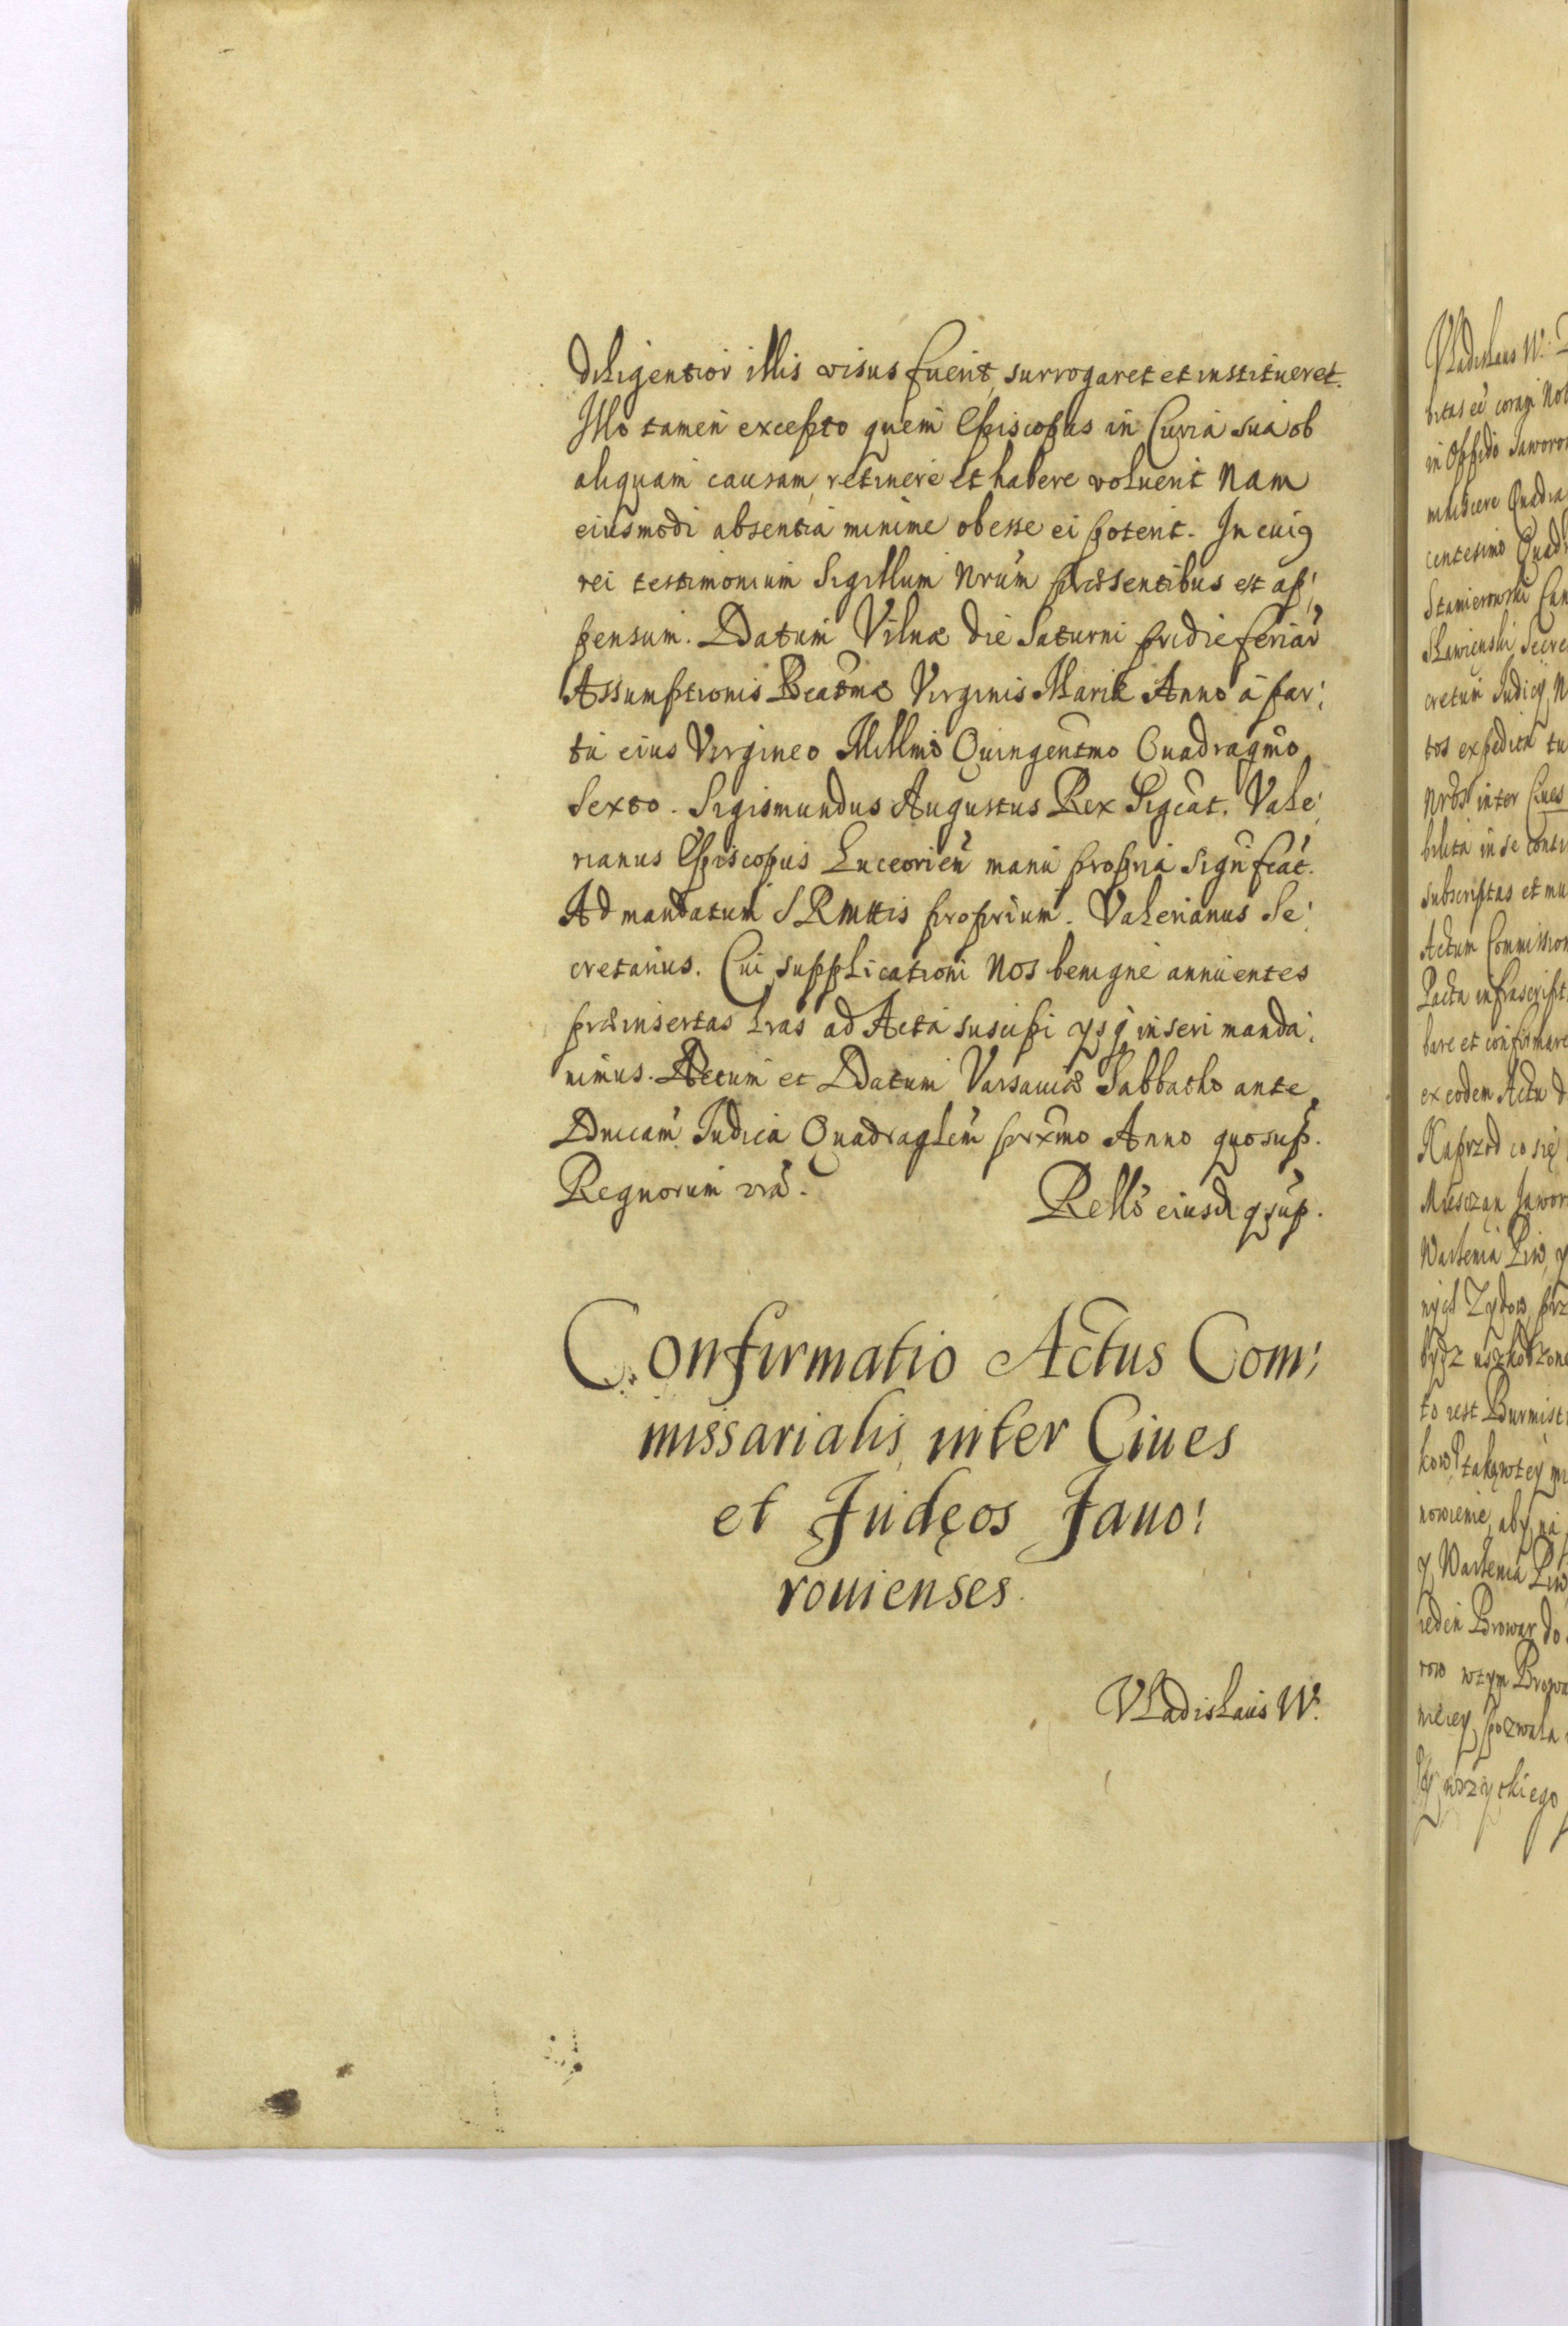 diligentior illis visus fuerit, surrogaret et institueret.
Illo tamen excepto quem Episcopus in Curia sua ob
aliquam causam, retinere et habere voluerit Nam
eiusmodi absentia minime obesse ei poterit. In cuiꝯ
rei testimonium Sigillum Nrum præsentibus est ap:
pensum. Datum Vilnæ die Saturni pridie feriar
Assumptionis Beatmæ Virginis Mariæ Anno à par:
tu eius Virgineo Millmo Quingentmo Quadragmo
Sexto. Sigismundus Augustus Rex Sigcat. Vale:
rianus Episcopus Luceorien manu propria signifcat.
Ad mandatum S R Mttis proprium. Valerianus Se:
cretarius. Cui supplicationi Nos benigne annuentes
præinsertas lras ad Acta suscipi ysq inseri manda:
uimus. Actum et Datum Varsauiæ Sabbatho ante
Dnicam Iudica Quadraglem prxmo Anno quo sup.
Regnorum vrā.
Rello eiusd q sup.
Confirmatio Actus Com:
missarialis, inter Ciues
et Judęos Jauo:
rouienses.
Vladislaus W.
Vladislaus W.
in Oppido Jaworo
centesimo Quad
Slawienski Secre
cretum Iudicy N
tos expedita tu
Nros inter Ciues
subscriptas et mu
Actum Commission
Pacta infrascript
bare et confirmare
ex eodem Actu d
Naprzod co się
Miesczan Jawor
Warzenia Piw, y
to iest Burmist
nowienie, aby na
y Warzenia Piw
ieden Browar do
row wtym Browa
wszytkiego